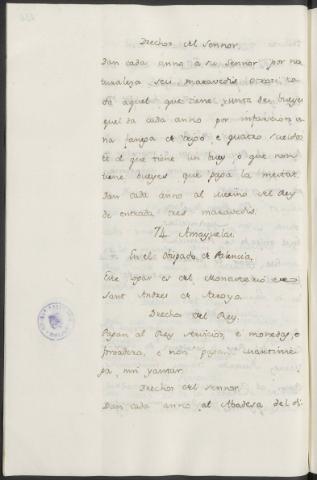 Drechos del Sennor.
Dan cada anno à su Sennor por na
turaleza seis maravedis, otrosi to
do aquel que tiene yunta de bueyes
quel da cada anno por infurcion, u
na fanega de trigo, e quatro sueldos
Et el que tiene un buey, o que non
tiene bueyes que paga la meitat.
Dan cada anno al merino del Rey
de entrada tres maravedis.
74 Amayuelas.
En el Obispado de Palencia.
Este logar es del Monasterio de
Sant Andres de Arroyo.
Drechos del Rey.
Pagan al Rey servicios, e monedas, e
fonsadera, e non pagan martinie
ga, nin yantar.
Drechos del Sennor.
Dan cada anno al Abadesa del di